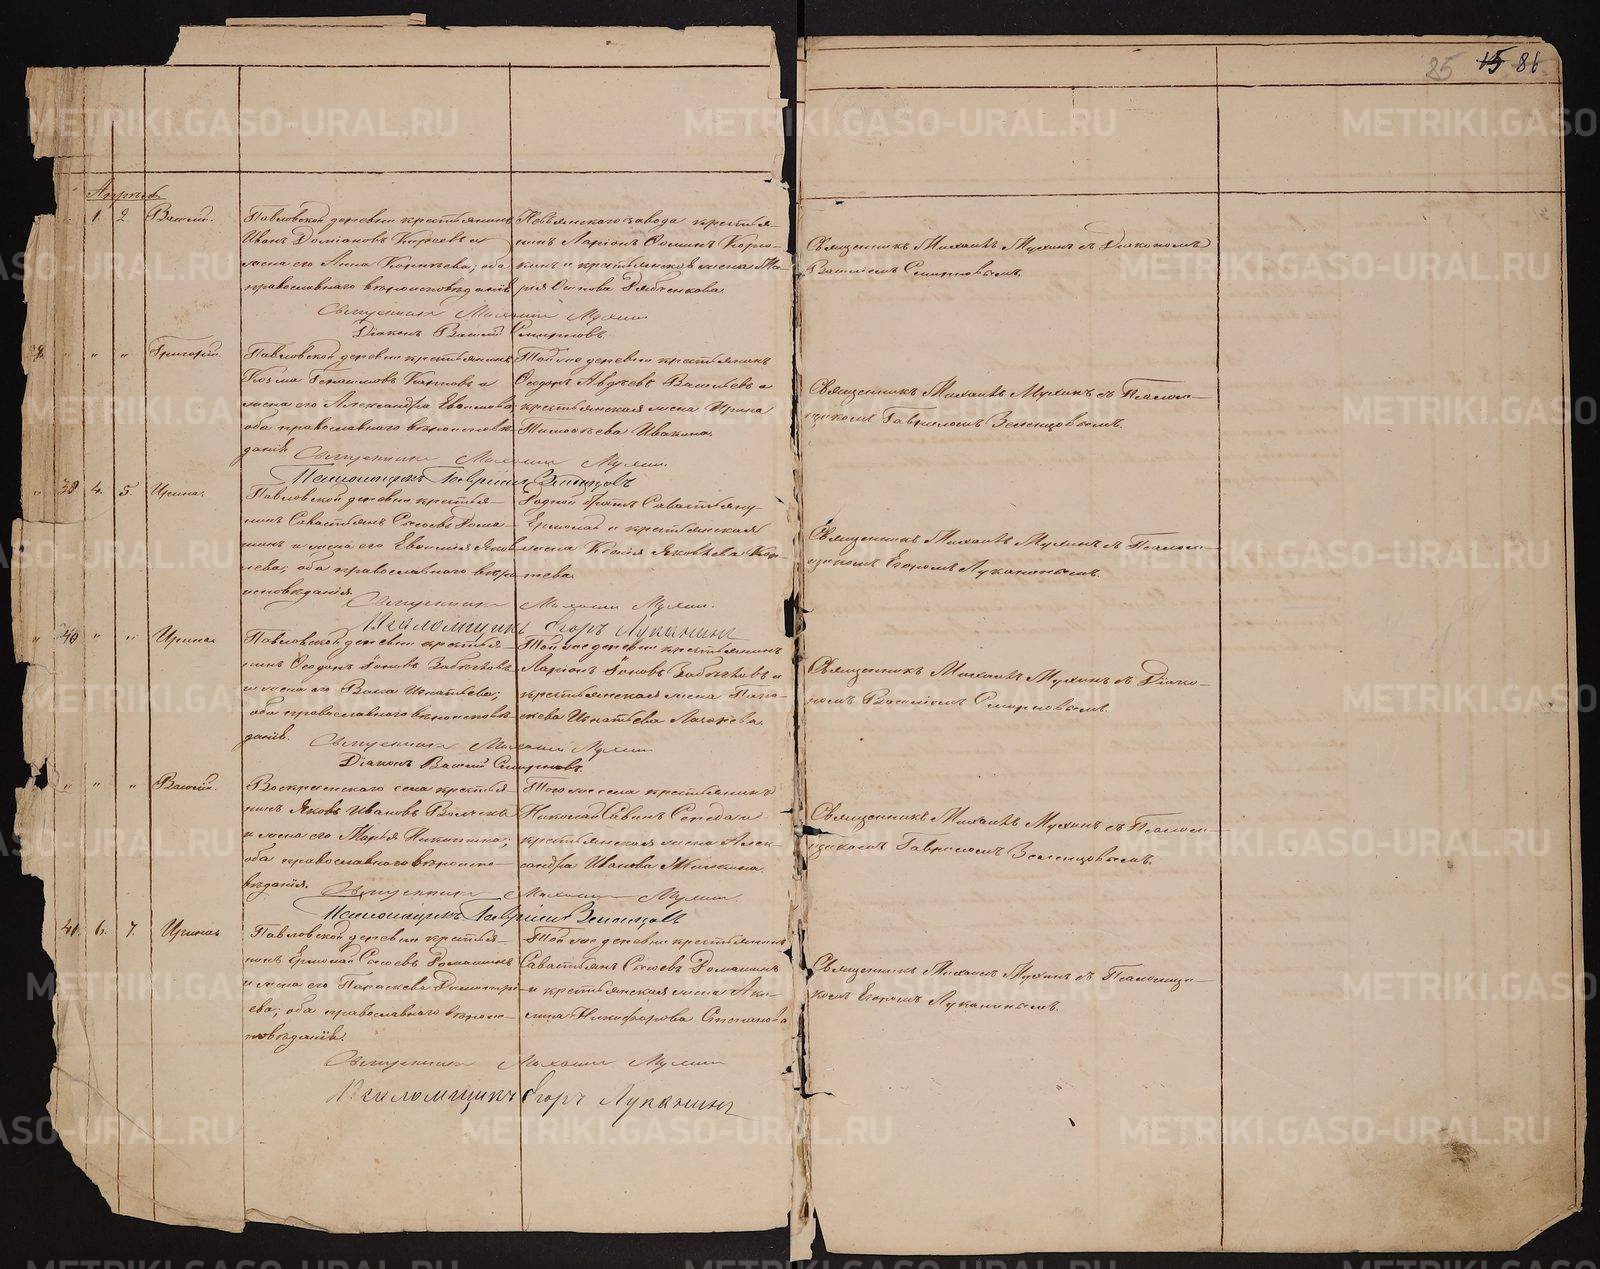 25 15 86
Апрель
1. 2. Василий.
Павловской деревни крестьянинъ
Иванъ Доміановъ Киреевъ и
жена его Анна Корнѣева; оба
православнаго вѣроисповѣданія
Невьянскаго завода крестья-
нинъ Ларіонъ Фоминъ
и крестьянская жена Ма-
рія Осипова
Священникъ Михаилъ Мухинъ
Діаконъ Василій Смирновъ.
Священникъ Михаилъ Мухинъ съ Діакономъ
Василіемъ Смирновымъ.
" " Григорій.
Павловской деревни крестьянинъ
Козьма Карповъ и
жена его Александра
оба православнаго вѣроисповѣ-
данія
Той же деревни крестьянинъ
Ѳеодоръ Авдѣевъ Васильевъ и
крестьянская жена Ирина
Тимоѳеева Ивакина.
Священникъ Михаилъ Мухинъ.
Псаломщикъ Гавріилъ Зеленцовъ
Священникъ Михаилъ Мухинъ съ Псалом-
щикомъ Гавріиломъ Зеленцовымъ.
39 4. 5. Ирина.
Павловской деревни крестья-
нинъ Савастьянъ Сысоевъ Рома-
шинъ и жена его Евѳимія Яков-
лева; оба православнаго вѣро-
исповѣданія.
Родной братъ Савастьяну-
Ермолай и крестьянская
жена Ксенія Яковлева
Священникъ Михаилъ Мухинъ.
Псаломщикъ Егоръ Луканинъ
Священникъ Михаилъ Мухинъ съ Псалом-
щикомъ Егоромъ Луканинымъ.
" 40 " " Ирина
Павловской деревни крестья-
нинъ Ѳеодоръ Іоновъ
и жена его Васса Игнатьева;
оба православнаго вѣроисповѣ-
данія.
Той же деревни крестьянинъ
Ларіонъ Іоновъ и
крестьянская жена Пара-
скева Игнатьева
Священникъ Михаилъ Мухинъ
Діаконъ Василій Смирновъ.
Священникъ Михаилъ Мухинъ съ Діако-
номъ Василіемъ Смирновымъ.
" " " Василій.
Воскресенскаго села крестья-
нинъ Яковъ Ивановъ
и жена его Марья Никитина;
оба православнаго вѣроиспо-
вѣданія.
Того же села крестьянинъ
Николай Савинъ и
крестьянская жена Алек-
сандра Иванова
Священникъ Михаилъ Мухинъ.
Псаломщикъ Гавріилъ Зеленцовъ
Священникъ Михаилъ Мухинъ съ Псалом-
щикомъ Гавріиломъ Зеленцовымъ.
41. 6. 7. Ирина
Павловской деревни крестья-
нинъ Ермолай Сысоевъ Ромашинъ
и жена его Параскева Димитрі-
ева; оба православнаго вѣроис-
повѣданія.
Той же деревни крестьянинъ
Савастьянъ Сысоевъ Ромашинъ
и крестьянская жена Аки-
лина Никифорова Степанова
Священникъ Михаилъ Мухинъ
Псаломщикъ Егоръ Луканинъ
Священникъ Михаилъ Мухинъ съ Псаломщи-
комъ Егоромъ Луканинымъ.
METRIKI.GASO-URAL.RU